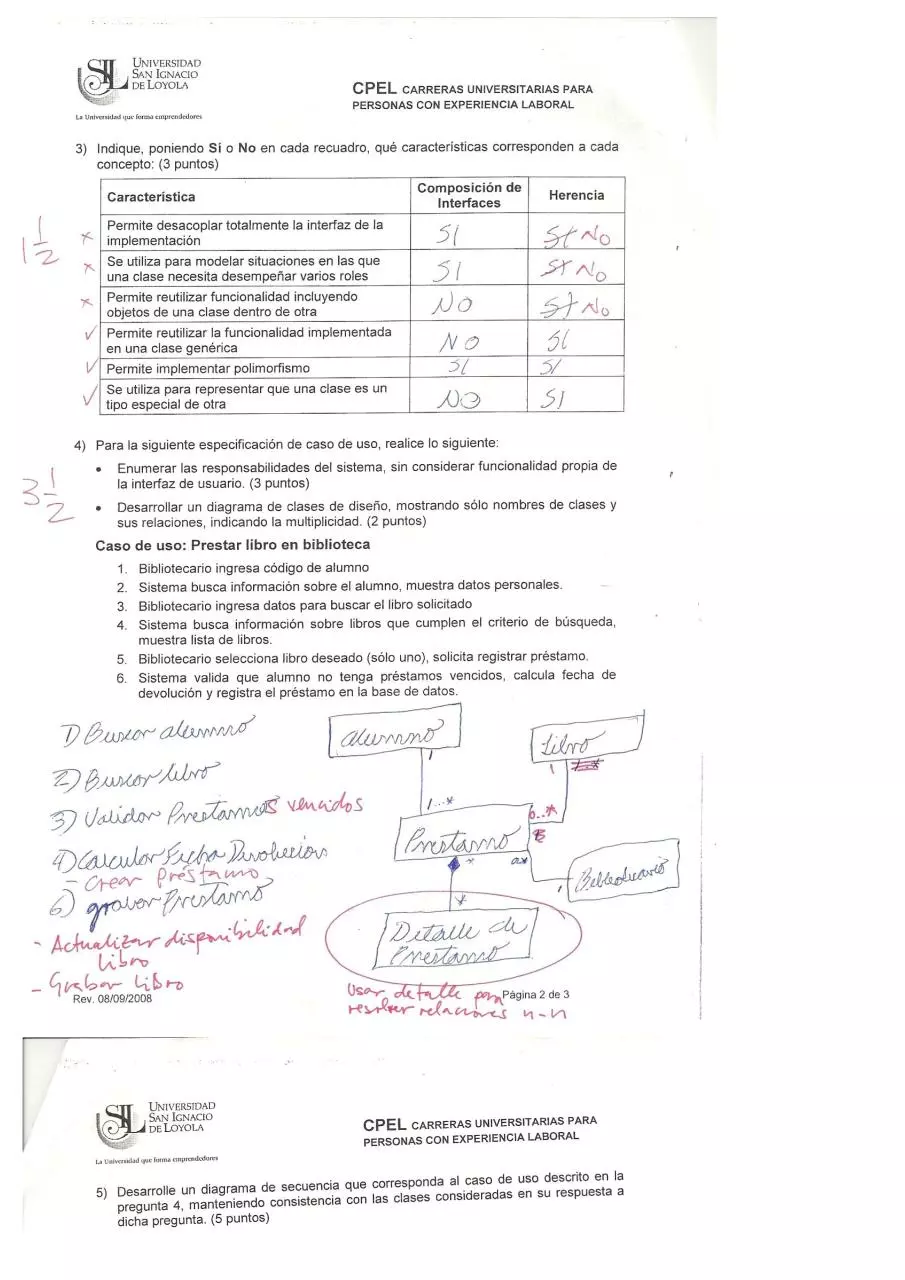 UNIVERSIDAD
SAN IGNACIO
DE LOYOLA
La Universidad que forma emprendedores
CPEL CARRERAS UNIVERSITARIAS PARA
PERSONAS CON EXPERIENCIA LABORAL
3) Indique, poniendo Sí o No en cada recuadro, qué características corresponden a cada
concepto: (3 puntos)
1 1/2
Característica Composición de Interfaces Herencia
Permite desacoplar totalmente la interfaz de la
implementación SI SI No
Se utiliza para modelar situaciones en las que
una clase necesita desempeñar varios roles SI SI No
Permite reutilizar funcionalidad incluyendo
objetos de una clase dentro de otra NO SI No
Permite reutilizar la funcionalidad implementada
en una clase genérica NO SI
Permite implementar polimorfismo SI SI
Se utiliza para representar que una clase es un
tipo especial de otra NO SI
4) Para la siguiente especificación de caso de uso, realice lo siguiente:
3 1/2
• Enumerar las responsabilidades del sistema, sin considerar funcionalidad propia de
la interfaz de usuario. (3 puntos)
• Desarrollar un diagrama de clases de diseño, mostrando sólo nombres de clases y
sus relaciones, indicando la multiplicidad. (2 puntos)
Caso de uso: Prestar libro en biblioteca
1. Bibliotecario ingresa código de alumno
2. Sistema busca información sobre el alumno, muestra datos personales.
3. Bibliotecario ingresa datos para buscar el libro solicitado
4. Sistema busca información sobre libros que cumplen el criterio de búsqueda,
muestra lista de libros.
5. Bibliotecario selecciona libro deseado (sólo uno), solicita registrar préstamo.
6. Sistema valida que alumno no tenga préstamos vencidos, calcula fecha de
devolución y registra el préstamo en la base de datos.
1) Buscar alumno
2) Buscar libro
3) Validar Prestamos vencidos
4) Calcular Fecha Devolucion
- Crear Préstamo
6) grabar Prestamo
- Actualizar disponibilidad
Libro
- Grabar Libro
alumno
Libro
1
1
1...*
0..*
Prestamo
*
Bibliotecario
1
*
Detalle de
Prestamo
Usar detalle para
resolver relaciones n-n
Rev. 08/09/2008
Página 2 de 3
UNIVERSIDAD
SAN IGNACIO
DE LOYOLA
La Universidad que forma emprendedores
CPEL CARRERAS UNIVERSITARIAS PARA
PERSONAS CON EXPERIENCIA LABORAL
5) Desarrolle un diagrama de secuencia que corresponda al caso de uso descrito en la
pregunta 4, manteniendo consistencia con las clases consideradas en su respuesta a
dicha pregunta. (5 puntos)